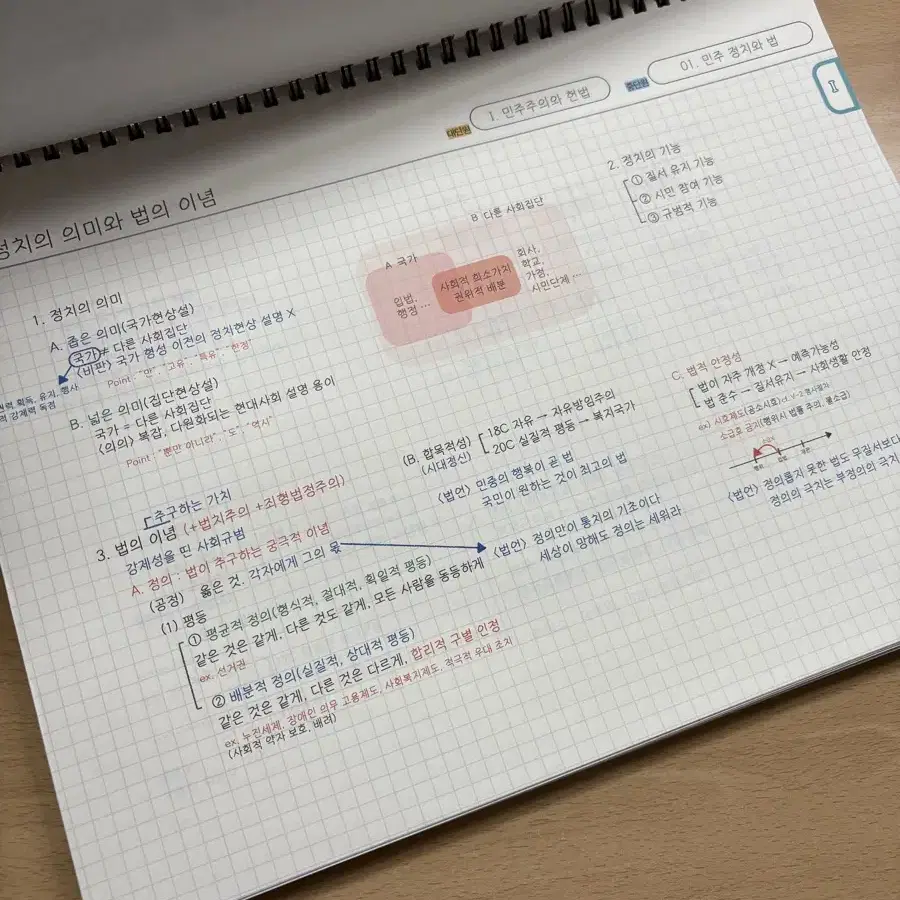 대단원
1. 민주주의와 헌법
중단원
01. 민주 정치와 법
I
정치의 의미와 법의 이념
1. 정치의 의미
A. 좁은 의미(국가현상설)
국가 ≠ 다른 사회집단
<비판> 국가 형성 이전의 정치현상 설명 X
Point : "만", "고유", "특유", "한정"
권력 획득, 유지, 행사
강제력 독점
B. 넓은 의미(집단현상설)
국가 = 다른 사회집단
<의의> 복잡, 다원화되는 현대사회 설명 용이
Point : "뿐만 아니라", "도", "역시"
A 국가
B 다른 사회집단
입법,
행정 ...
사회적 희소가치
권위적 배분
회사,
학교,
가정,
시민단체 ...
2. 정치의 기능
① 질서 유지 기능
② 시민 참여 기능
③ 규범적 기능
추구하는 가치
3. 법의 이념 (+법치주의 +죄형법정주의)
강제성을 띤 사회규범
A. 정의 : 법이 추구하는 궁극적 이념
(공정) 옳은 것. 각자에게 그의 몫
(1) 평등
① 평균적 정의(형식적, 절대적, 획일적 평등)
같은 것은 같게, 다른 것도 같게, 모든 사람을 동등하게
ex. 선거권
② 배분적 정의(실질적, 상대적 평등)
같은 것은 같게, 다른 것은 다르게, 합리적 구별 인정
ex. 누진세제, 장애인 의무 고용제도, 사회복지제도, 적극적 우대 조치
(사회적 약자 보호, 배려)
(B. 합목적성)
(시대정신)
18C 자유 → 자유방임주의
20C 실질적 평등 → 복지국가
<법언> 민중의 행복이 곧 법
국민이 원하는 것이 최고의 법
<법언> 정의만이 통치의 기초이다
세상이 망해도 정의는 세워라
C. 법적 안정성
법이 자주 개정 X → 예측가능성
법 준수 → 질서유지 → 사회생활 안정
ex) 시효제도(공소시효)
소급효 금지(행위시 법률 주의, 불소급)
<법언> 정의롭지 못한 법도 무질서보다
정의의 극치는 부정의의 극치